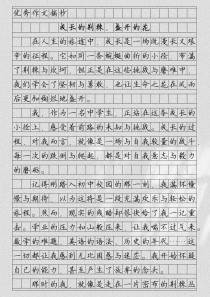 优秀作文摘抄
成长的荆棘，盛开的花
在人生的旅途中，成长是一场既漫长又艰
辛的征程。它如同一条蜿蜒曲折的小径，布满
了荆棘与坎坷，但正是在这些挑战与磨难中，
我们学会了坚韧与勇敢，也让生命之花在风雨
后更加绚烂地盛开。
作为一名中学生，正站在这条成长的
小径上，感受着前路的未知与挑战。成长的过
程，对我而言，就像是一场与自我较量的战斗
每一次的跌倒与爬起，都是对自我意志与毅力
的磨砺。
记得刚踏入初中校园的那一刻，我满怀憧
憬与期待，以为这将是一段充满欢乐与轻松的
旅程。然而，现实的残酷却很快给了我一记重
击。学业的压力如山般压来，让我喘不过气来。
数学的难题、英语的语法、历史的年代，这一
切都让我感到无比困惑与迷茫。我开始怀疑
自己的能力，甚至产生了放弃的念头。
那时的我，就像是走在一片密布的荆棘丛